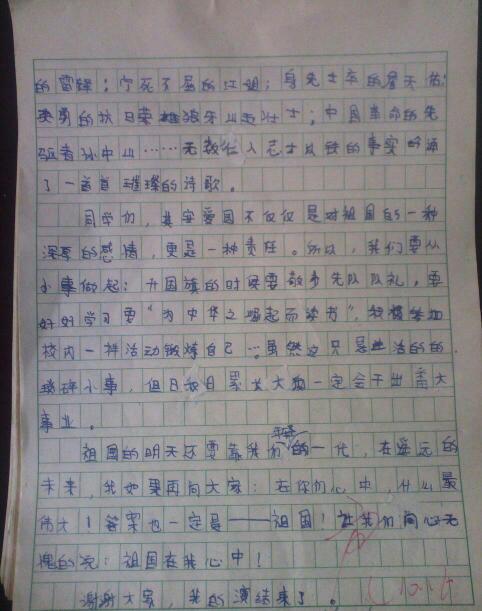 的雷锋；宁死不屈的江姐；身先士卒的詹天佑；
英勇的抗日英雄狼牙山五壮士；中国革命的先
驱者孙中山……无数仁人志士以铁的事实吟诵
了一首首璀璨的诗歌。
同学们，其实爱国不仅仅是对祖国的一种
深厚的感情，更是一种责任。所以，我们要从
小事做起：升国旗的时候要敬少先队队礼，要
好好学习要“为中华之崛起而读书”，积极参加
校内一种活动锻炼自己…虽然这只是生活的的
琐碎小事，但日积月累长大后一定会干出
大
事业。
祖国的明天还要靠我们年轻的一代，在遥远的
未来，我如果再问大家：在你们心中，什么最
伟大！答案也一定是——祖国！让我们问心无
愧的说：祖国在我心中！
谢谢大家，我的演结束了。